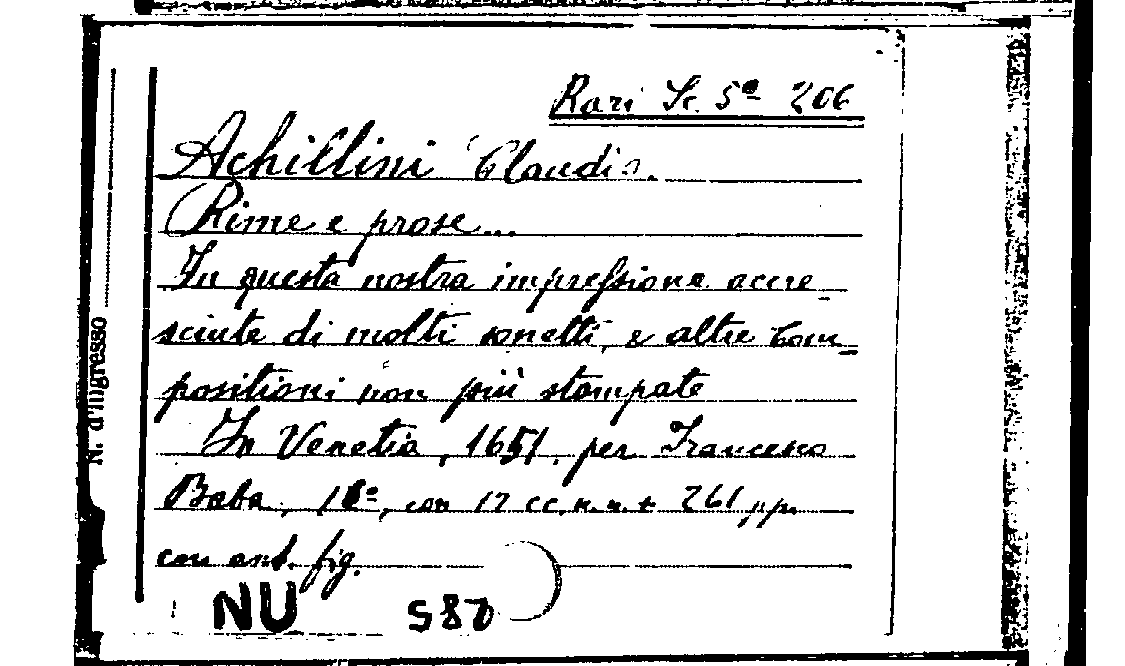 Rari Sc. 5ª 206
Achillini Claudio.
Rime e prose...
In questa nostra impressione accre_
sciute di molti sonetti, e altre com_
positioni non più stampate
In Venetia, 1651, per Francesco
Baba, 1 con 12 cc. n. n. + 261 pp.
con ant. fig.
NU 580
N. d'ingresso